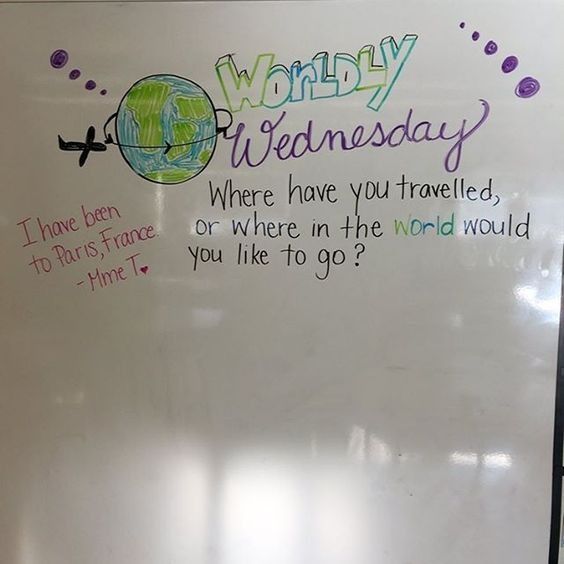 WORLDLY
Wednesday
Where have you travelled,
or where in the world would
you like to go?
I have been
to Paris, France.
- Mme T.♥